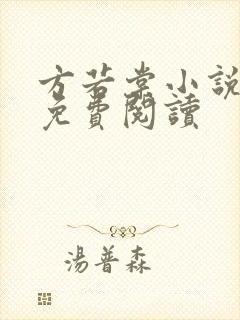 方若棠小說
免費閱讀
湯普森